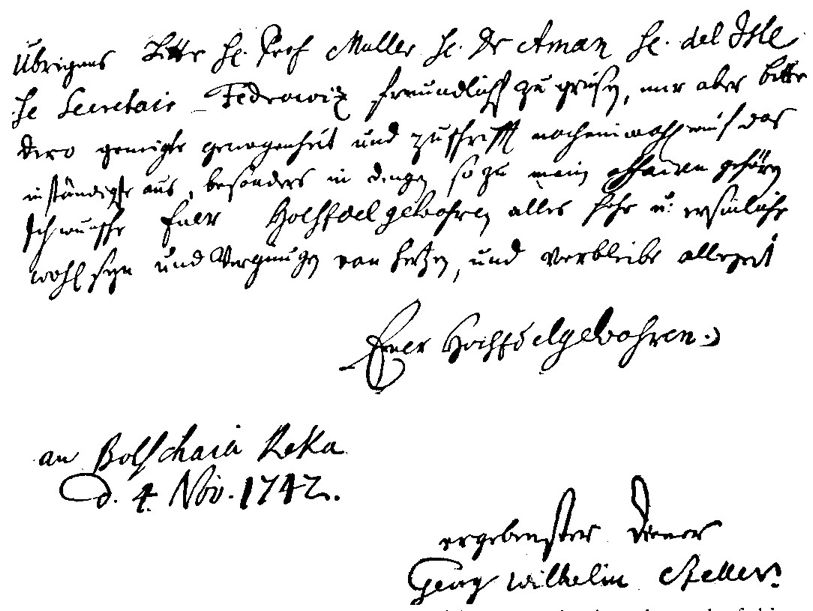 Übrigens bitte H. Prof Muller H. Dr Aman H. del Isle
H. Secretair Fedrowiz freundlichst zu grüsen, mir aber bitte
dero geneigte gewogenheit und zuschrifft nocheinmahl auf das
inständigste aus, besonders in dingen so zu mein affairen gehören
Ich wunsche Euer Hochedelgebohren alles hohe u: ersinliche
wohlseyn und Vergnugen von hertzen, und verbleibe allezeit
Euer Hochedelgebohren
an Bolschaia Reka
d. 4. Nov. 1742.
ergebenster Diener
Georg Wilhelm Steller